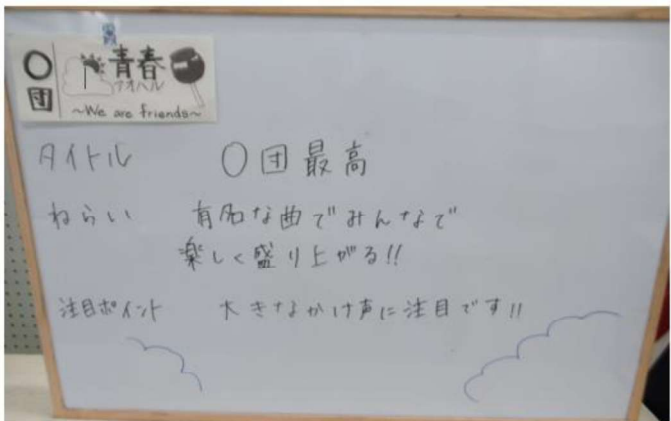 ○団
青春
アオハル
~We are friends~
タイトル ○団最高
ねらい 有名な曲でみんなで
楽しく盛り上がる!!
注目ポイント 大きなかけ声に注目です!!